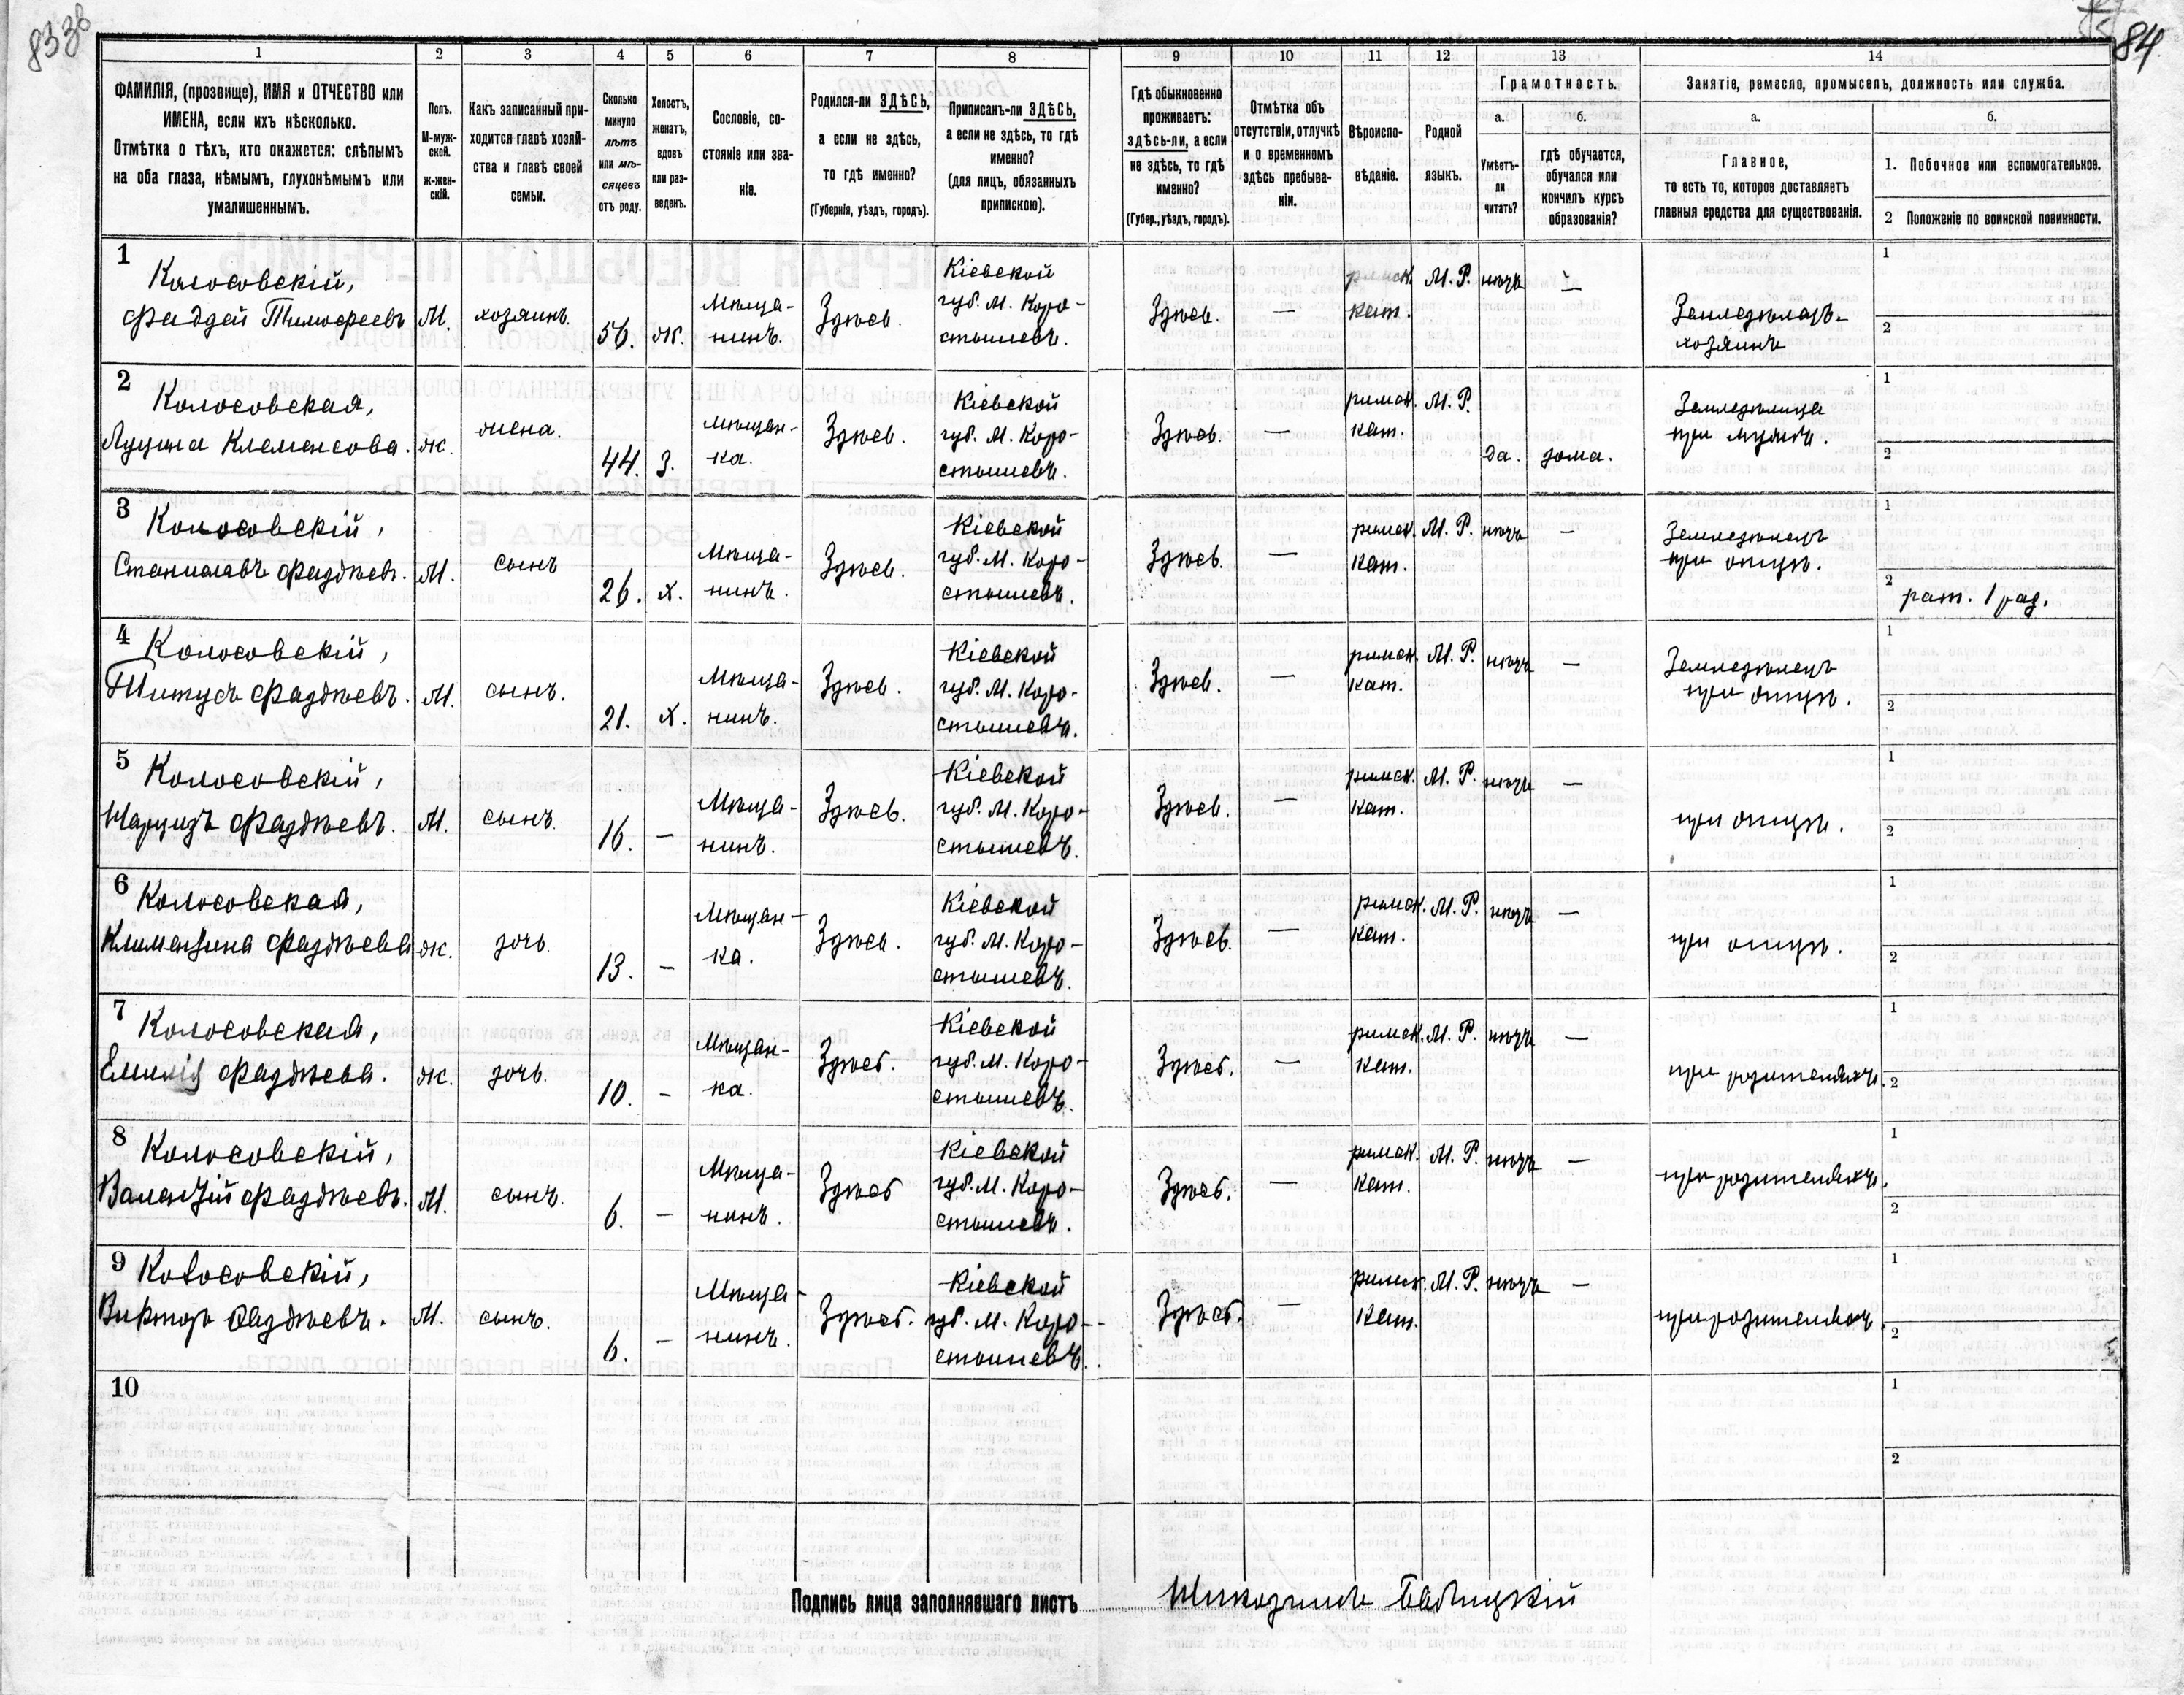 84
1 2 3 4 5 6 7 8 9 10 11 12 13 14
ФАМИЛІЯ, (прозвище), ИМЯ и ОТЧЕСТВО или
ИМЕНА, если ихъ нѣсколько.
Отмѣтка о тѣхъ, кто окажется: слѣпымъ
на оба глаза, нѣмымъ, глухонѣмымъ или
умалишеннымъ.
Полъ.
М-муж-
ской.
ж-жен-
скій.
Какъ записанный при-
ходится главѣ хозяй-
ства и главѣ своей
семьи.
Сколько
минуло
лѣтъ
или мѣ-
сяцевъ
отъ роду.
Холостъ,
женатъ,
вдовъ
или раз-
веденъ.
Сословіе, со-
стояніе или зва-
ніе.
Родился-ли ЗДѢСЬ,
а если не здѣсь,
то гдѣ именно?
(Губернія, уѣздъ, городъ).
Приписанъ-ли ЗДѢСЬ,
а если не здѣсь, то гдѣ
именно?
(для лицъ, обязанныхъ
припискою).
Гдѣ обыкновенно
проживаетъ:
здѣсь-ли, а если
не здѣсь, то гдѣ
именно?
(Губер., уѣздъ, городъ).
Отмѣтка объ
отсутствіи, отлучкѣ
и о временномъ
здѣсь пребыва-
ніи.
Вѣроиспо-
вѣданіе.
Родной
языкъ.
Грамотность.
а.
Умѣетъ-
ли
читать?
б.
гдѣ обучается,
обучался или
кончилъ курсъ
образованія?
Занятіе, ремесло, промыселъ, должность или служба.
а.
Главное,
то есть то, которое доставляетъ
главныя средства для существованія.
б.
1. Побочное или вспомогательное.
2 Положеніе по воинской повинности.
1
Колосовскій,
Фаддей Тимофеевъ
М.
хозяинъ.
56.
ж.
Мѣща-
нинъ.
Здѣсь.
Кіевской
губ. М. Коро-
стышевъ.
Здѣсь.
—
римск.
кат.
М. Р.
нѣтъ
—
Земледѣлецъ-
хозяинъ
1
2
2
Колосовская,
Луцина Клеменсова.
ж.
жена.
44.
З.
Мѣщан-
ка.
Здѣсь.
Кіевской
губ. М. Коро-
стышевъ.
Здѣсь.
—
римск.
кат.
М. Р.
да.
дома.
Земледѣлица
при мужѣ.
1
2
3
Колосовскій,
Станиславъ Фаддѣевъ.
М.
сынъ
26.
х.
Мѣща-
нинъ.
Здѣсь.
Кіевской
губ. М. Коро-
стышевъ.
Здѣсь.
—
римск.
кат.
М. Р.
нѣтъ
—
Земледѣлецъ
при отцѣ.
1
2
рат. 1 раз.
4
Колосовскій,
Титусъ Фаддѣевъ.
М.
сынъ.
21.
х.
Мѣща-
нинъ.
Здѣсь.
Кіевской
губ. М. Коро-
стышевъ.
Здѣсь.
—
римск.
кат.
М. Р.
нѣтъ
—
Земледѣлецъ
при отцѣ.
1
2
5
Колосовскій,
Нарцизъ Фаддѣевъ.
М.
сынъ.
16.
—
Мѣща-
нинъ.
Здѣсь.
Кіевской
губ. М. Коро-
стышевъ.
Здѣсь.
—
римск.
кат.
М. Р.
нѣтъ
—
при отцѣ.
1
2
6
Колосовская,
Климентина Фаддѣева
ж.
дочь.
13.
—
Мѣщан-
ка.
Здѣсь.
Кіевской
губ. М. Коро-
стышевъ.
Здѣсь.
—
римск.
кат.
М. Р.
нѣтъ
—
при отцѣ.
1
2
7
Колосовская,
Емилія Фаддѣева.
ж.
дочь.
10.
—
Мѣщан-
ка.
Здѣсь.
Кіевской
губ. М. Коро-
стышевъ.
Здѣсь.
—
римск.
кат.
М. Р.
нѣтъ
—
при родителяхъ.
1
2
8
Колосовскій,
Фаддѣевъ.
М.
сынъ.
6.
—
Мѣща-
нинъ.
Здѣсь
Кіевской
губ. М. Коро-
стышевъ.
Здѣсь.
—
римск.
кат.
М. Р.
нѣтъ
—
при родителяхъ.
1
2
9
Колосовскій,
Викторъ Фаддѣевъ.
М.
сынъ.
6.
—
Мѣща-
нинъ.
Здѣсь.
Кіевской
губ. М. Коро-
стышевъ.
Здѣсь.
—
римск.
кат.
М. Р.
нѣтъ
—
при родителяхъ.
1
2
10
1
2
Подпись лица заполнявшаго листъ